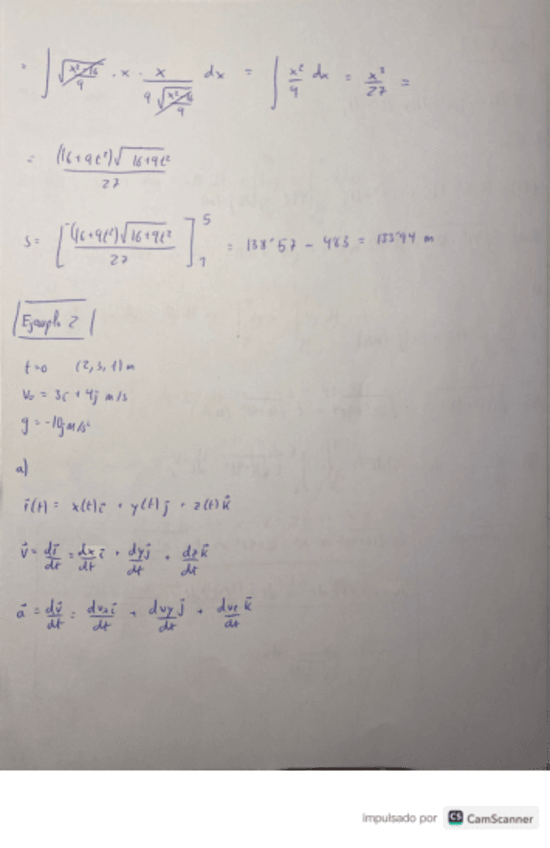 = ∫ √(x²-16)/9 · x · x/(9 √(x²-16)/9) dx = ∫ x²/9 dx = x³/27 =
= (16+9t²)√16+9t²/27
s = [(16+9t²)√16+9t²/27]₁⁵ = 138'57 - 4'63 = 133'94 m
Ejemplo 2
t=0 (2,3,1) m
v₀ = 3i + 4j m/s
g = -10j m/s²
a)
r⃗(t) = x(t)i⃗ + y(t)j⃗ + z(t)k⃗
v⃗ = dr⃗/dt = dx/dt i⃗ + dy/dt j⃗ + dz/dt k⃗
a⃗ = dv⃗/dt = dvx/dt i⃗ + dvy/dt j⃗ + dvz/dt k⃗
impulsado por CS CamScanner